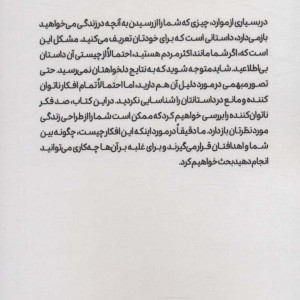 در بسیاری از موارد، چیزی که شما را از رسیدن به آنچه در زندگی می‌خواهید
باز می‌دارد، داستانی است که برای خودتان تعریف می‌کنید. مشکل این
است که، اگر شما مانند اکثر مردم هستید، احتمالاً از چیستی آن داستان
بی‌اطلاعید. شاید متوجه شوید که به نتایج دلخواهتان نمی‌رسید. حتی
تصور مبهمی در مورد دلیل آن هم دارید، اما احتمالاً تمام افکار ناتوان
کننده و مانع در داستانتان را شناسایی نکردید. در این کتاب، صد فکر
ناتوان‌کننده را بررسی خواهیم کرد که ممکن است شما را از طراحی زندگی
مورد نظرتان باز دارد. ما دقیقاً در مورد اینکه این افکار چیست، چگونه بین
شما و اهدافتان قرار می‌گیرند و برای غلبه بر آن‌ها چه کاری می‌توانید
انجام دهید بحث خواهیم کرد.